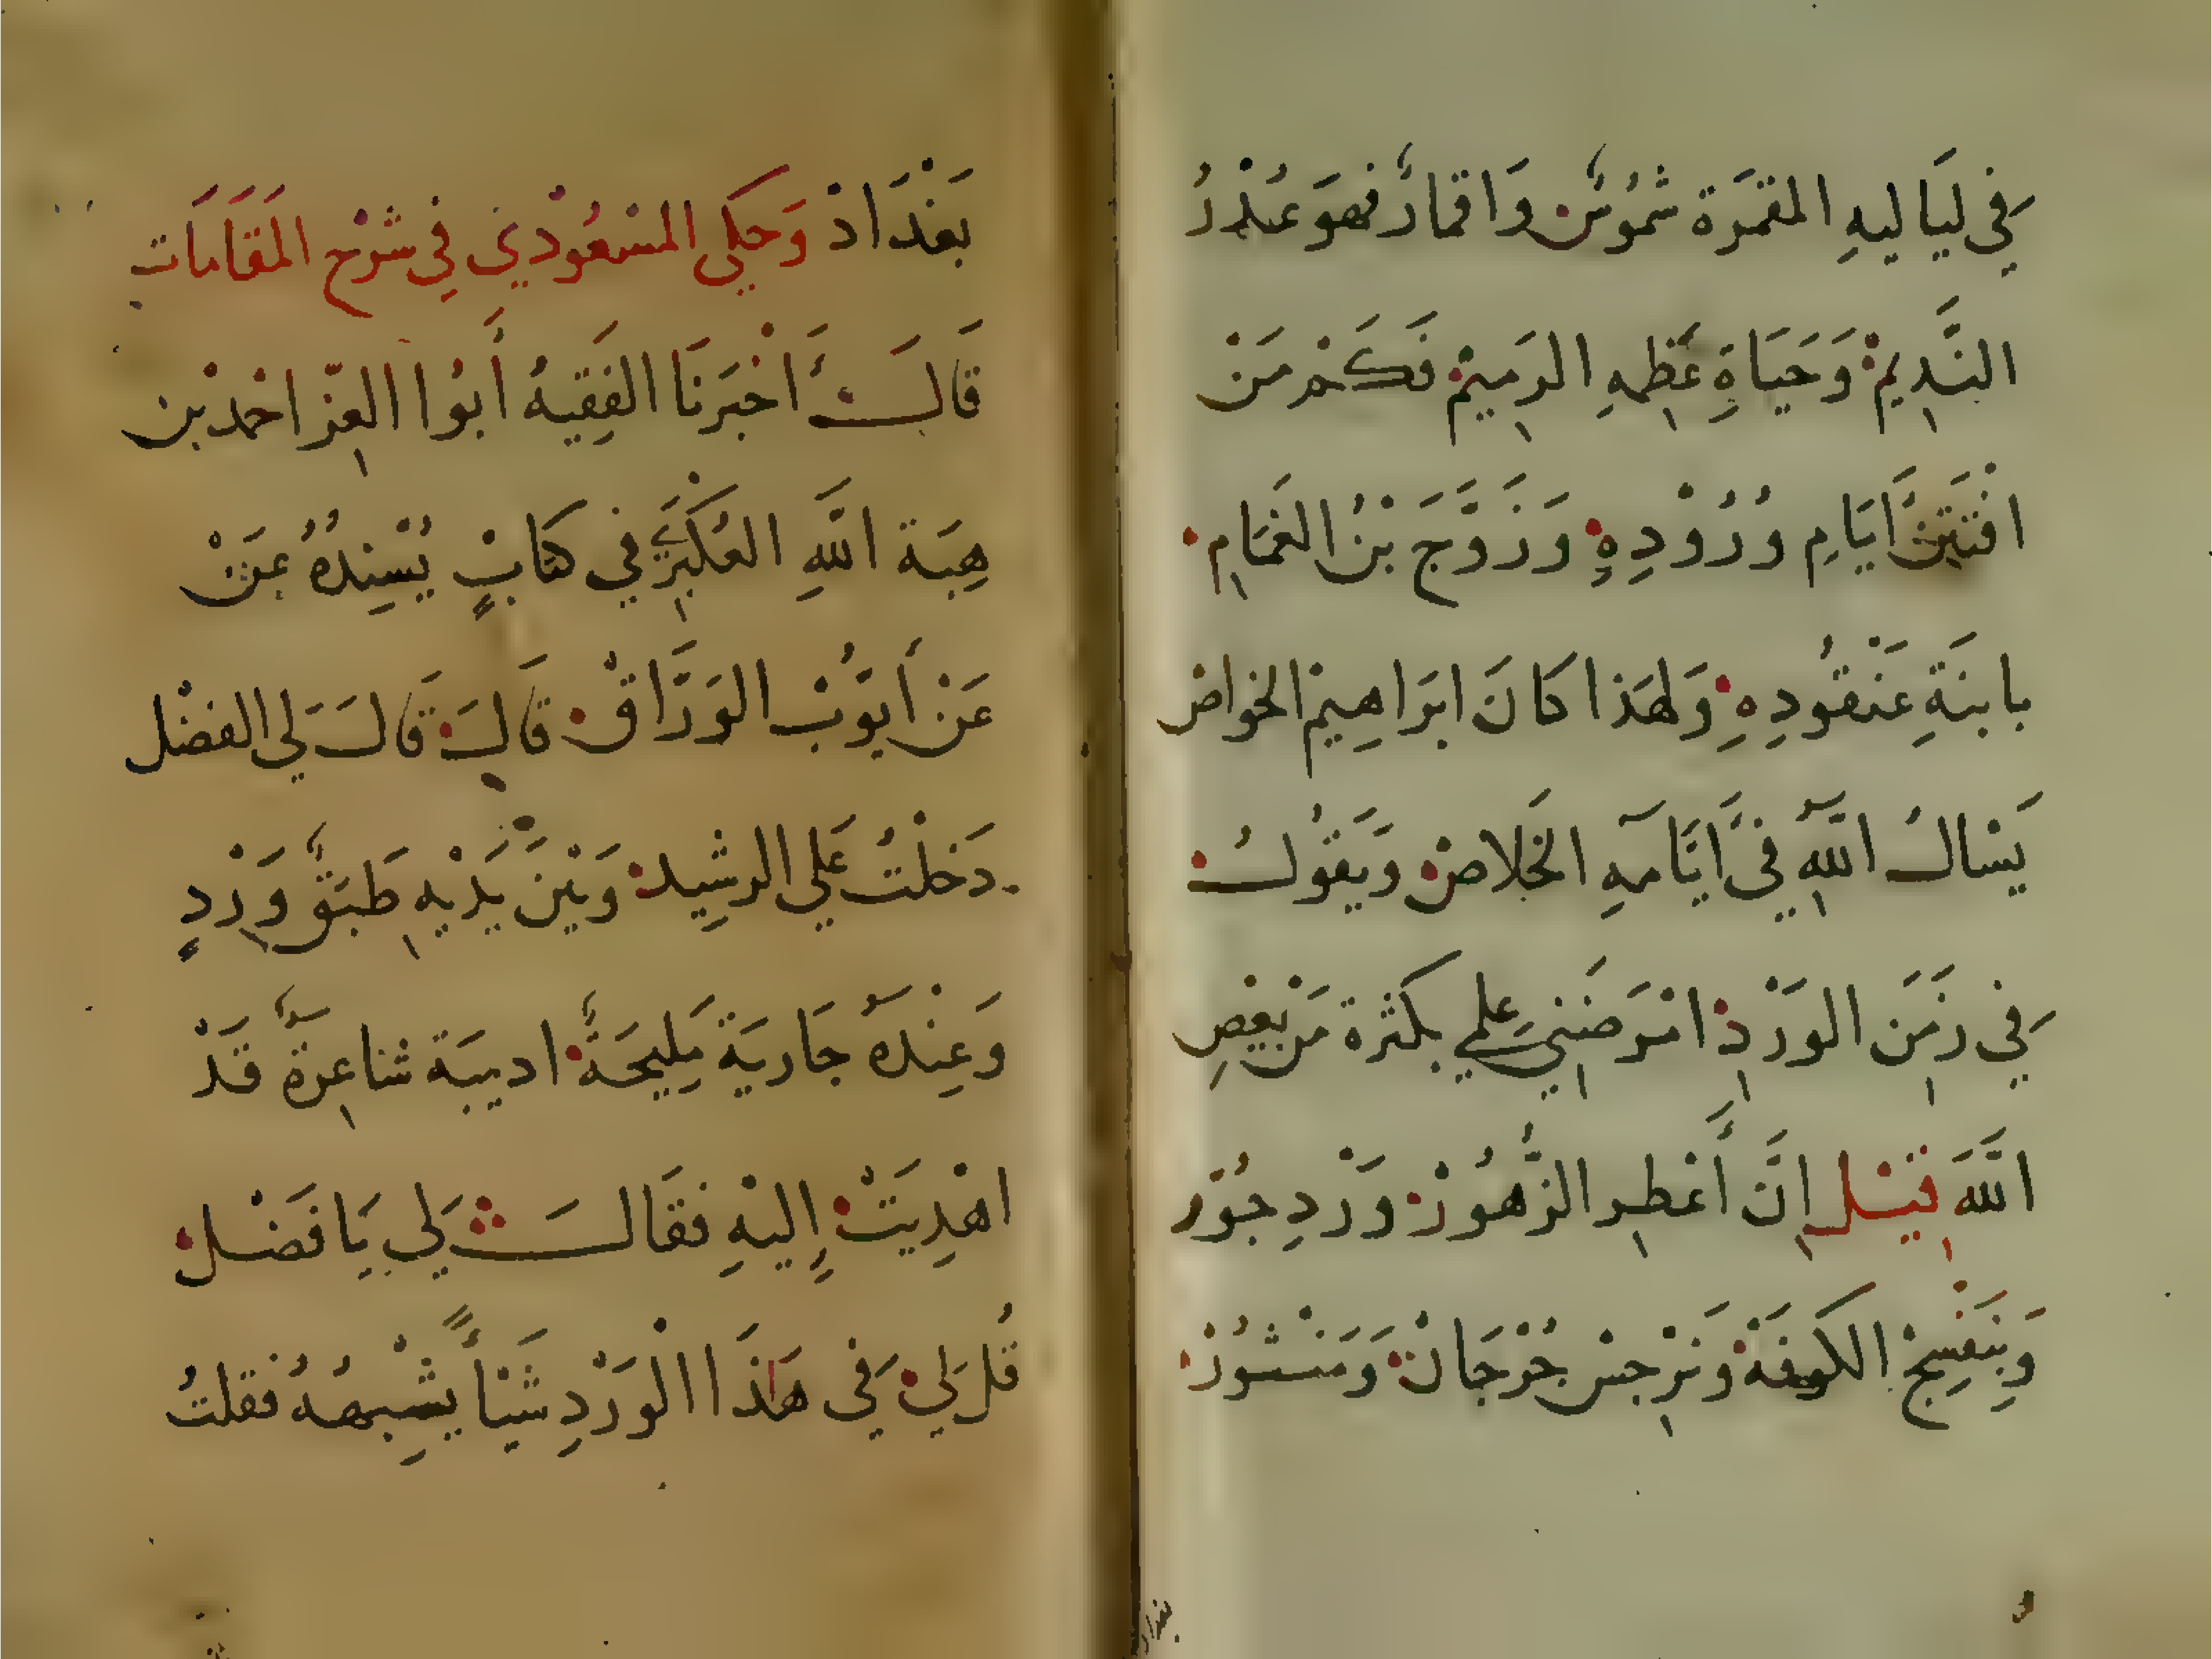 في لياليه المقمرة شموس واقمار فهو عذر
النديم وحياة عظمه الرميم فكم من
افتتن أيام وروده وزوج بن الغمام
بابنة عنقوده ولهذا كان ابراهيم الخواص
يسال الله في أيامه الخلاص ويقول
في زمن الورد امرضني علمي بكثرة من يعص
الله قيل إن أعطر الزهور ورد جور
وبنفسج الكوفة ونرجس جرجان ومنثور
بغداد
بغداد وحكي المسعودي في شرح المقامات
قال أخبرنا الفقيه أبوا العز احمد بن
هبة الله العكبري في كتاب يسنده عن
عن أيوب الوراق قال قال لي الفضل
دخلت علي الرشيد وبين يديه طبق ورد
وعنده جارية مليحة اديبة شاعرة قد
اهديت إليه فقالت لي يا فضل
قل لي في هذا الورد شيأ يشبهه فقلت